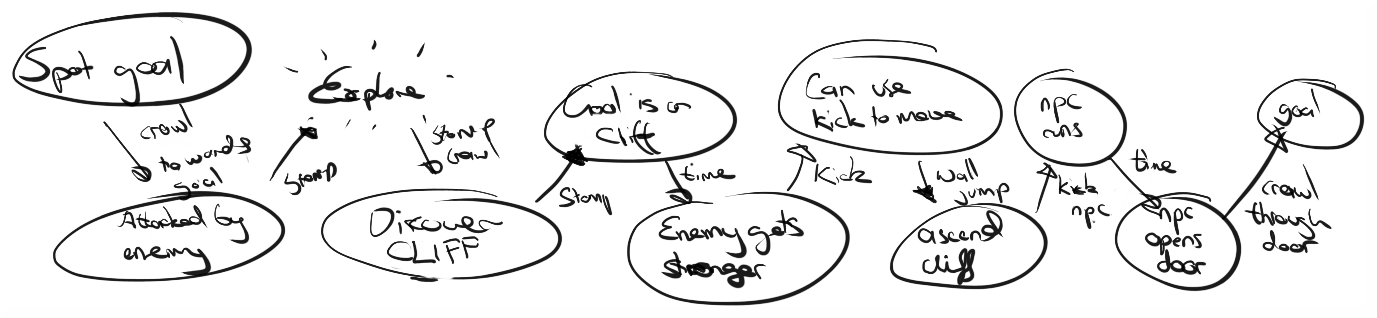 Spot goal
crawl
towards
goal
Attacked by
enemy
Stomp
Explore
Stomp
Crawl
Discover
CLIFF
Stomp
Goal is on
Cliff
time
Enemy gets
stronger
Kick
Can use
kick to move
wall
jump
ascend
cliff
kick
npc
npc
runs
time
npc
opens
door
crawl
through
door
goal